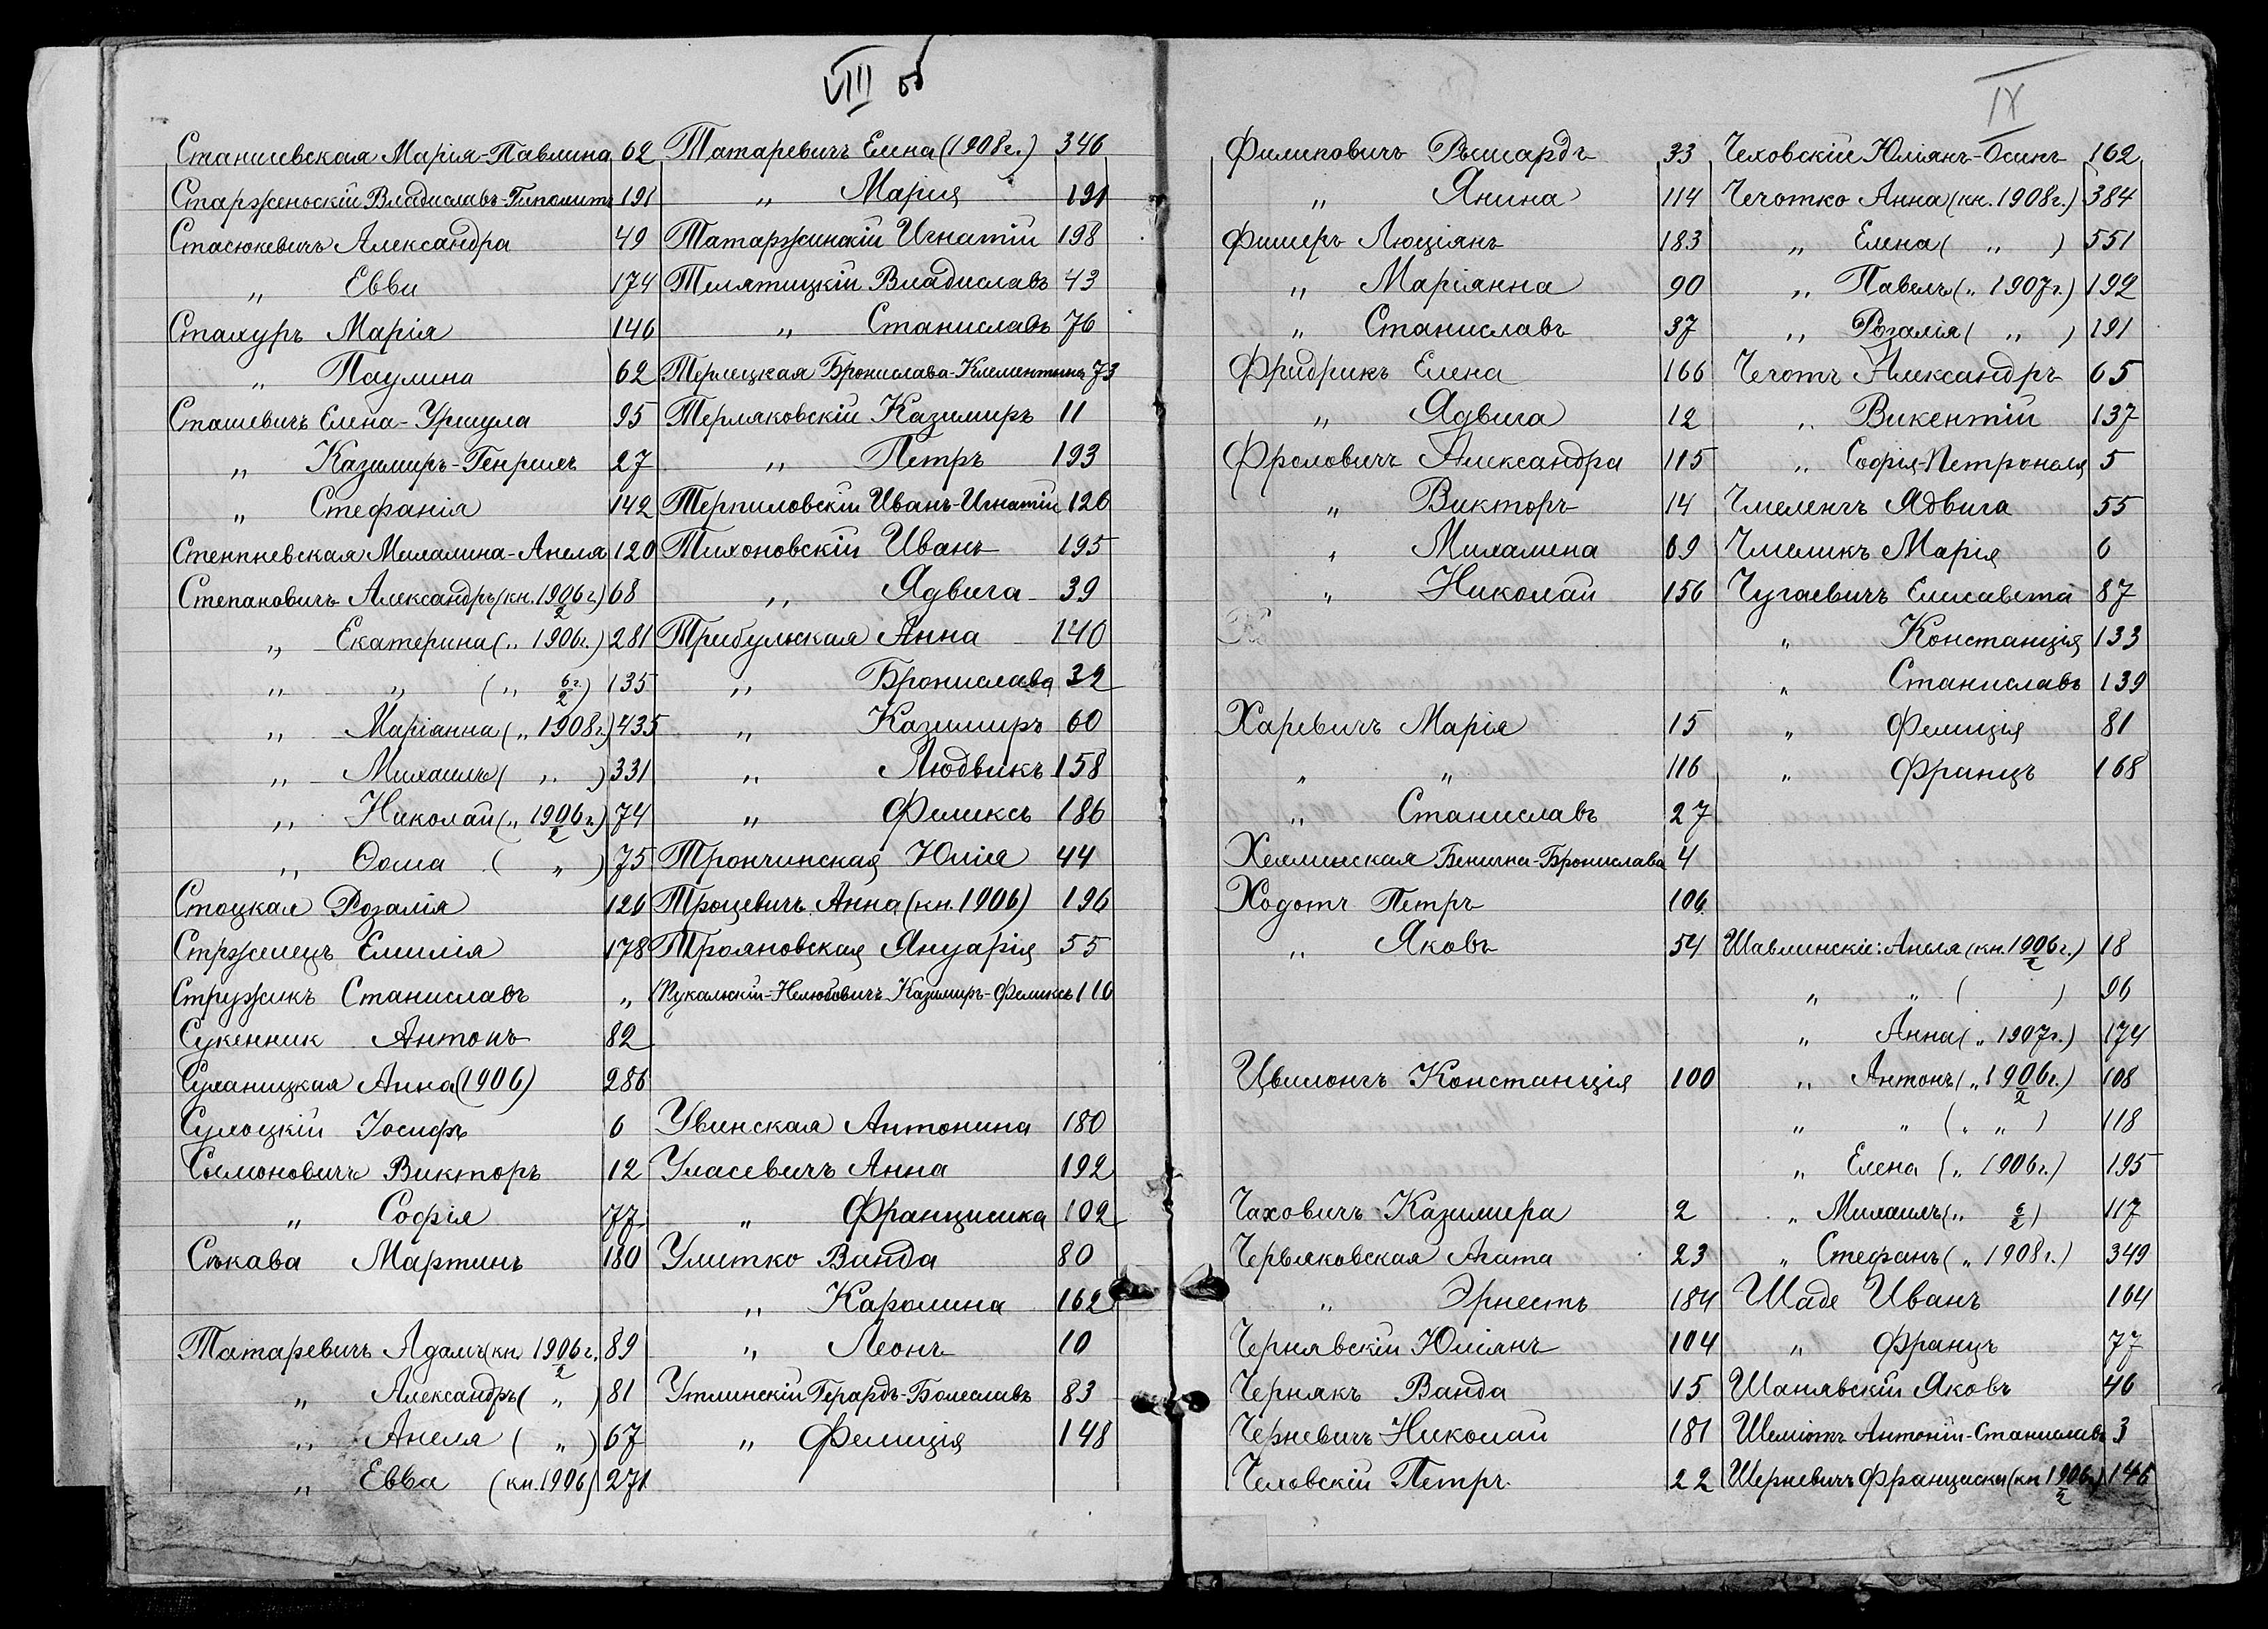 VIII об
Станишевская Марія-Павлина 62
Старженьскій Владиславъ-Гиполитъ 191
Стасюкевичъ Александра 49
„ Евви 174
Стахуръ Марія 146
„ Паулина 62
Сташевичъ Елена-Уршула 95
„ Казимиръ-Генрихъ 27
„ Стефанія 142
Стемпневская Михалина-Анеля 120
Степановичъ Александръ (кн. 1906/2 г.) 68
„ Екатерина („ 1906г.) 281
„ „ („ 6г./2) 135
„ Маріанна („ 1908г.) 435
„ Михаилъ ( „ ) 331
„ Николай („ 1906/2 г.) 74
„ Ѳома ( „ ) 75
Стоцкая Розалія 126
Стржелецъ Емилія 178
Стружикъ Станиславъ „
Сукенник Антонъ 82
Суланицкая Анна (1906) 286
Сулоцкій Іосифъ 6
Сымоновичъ Викторъ 12
„ Софія 77
Сѣкава Мартинъ 180
Татаревичъ Адамъ (кн. 1906/2 г. 89
„ Александръ ( „ ) 81
„ Анеля ( „ ) 67
„ Евва (кн. 1906) 271
Татаревичъ Елена (1908г.) 346
„ Мария 191
Татаржинскій Игнатій 198
Телятицкій Владиславъ 43
„ Станиславъ 76
Терлецкая Бронислава-Клементина 73
Терляковскій Казимиръ 11
„ Петръ 193
Терпиловскій Иванъ-Игнатій 126
Тихоновскій Иванъ 195
„ Ядвига 39
Трибульская Анна 140
„ Бронислава 32
„ Казимиръ 60
„ Людвикъ 158
„ Феликсъ 186
Трончинская Юлія 44
Троцевичъ Анна (кн. 1906) 196
Трояновская Януарія 55
Тукальскій-Нелюбовичъ Казимиръ-Феликсъ 116
Увинская Антонина 180
Уласевичъ Анна 192
„ Францишка 102
Улитко Ванда 80
„ Каролина 162
„ Леонъ 10
Утлинскій Герардъ-Болеславъ 83
„ Фелиція 148
IX
Филиповичъ Рышардъ 33
„ Янина 114
Фишеръ Люціянъ 183
„ Маріянна 90
„ Станиславъ 37
Фридрикъ Елена 166
„ Ядвига 12
Фроловичъ Александра 115
„ Викторъ 14
„ Михалина 69
„ Николай 156
Харевичъ Марія 15
„ „ 116
„ Станиславъ 27
Хелминская Бенигна-Бронислава 4
Ходотъ Петръ 106
„ Яковъ 54
Цвилонгъ Констанція 100
Чаховичъ Казимира 2
Червяковская Агата 23
„ Эрнестъ 184
Чернявскій Юліянъ 104
Чернякъ Ванда 15
Черневичъ Николай 181
Чеховскій Петръ 22
Чеховскій Юліянъ-Осипъ 162
Чечотко Анна (кн. 1908г.) 384
„ Елена ( „ ) 551
„ Павелъ („ 1907г.) 192
„ Розалія ( „ ) 191
Чечотъ Александръ 65
„ Викентій 137
„ Софія-Петронеля 5
Чмеленгъ Ядвига 55
Чмеликъ Марія 6
Чугаевичъ Елисавета 87
„ Констанція 133
„ Станиславъ 139
„ Фелиція 81
„ Францъ 168
Шавлинскіе: Анеля (кн. 1906/2 г.) 18
„ „ ( ) 96
„ Анна („ 1907г.) 174
„ Антонъ („ 1906/2 г.) 108
„ „ („ „ ) 118
„ Елена („ 1906г.) 195
„ Михаилъ („ 6/2) 117
„ Стефанъ („ 1908г.) 349
Шаде Иванъ 164
„ Францъ 77
Шанявскій Яковъ 46
Шеліотъ Антоній-Станиславъ 3
Шерневичъ Франциски (кн 1906/2) 145